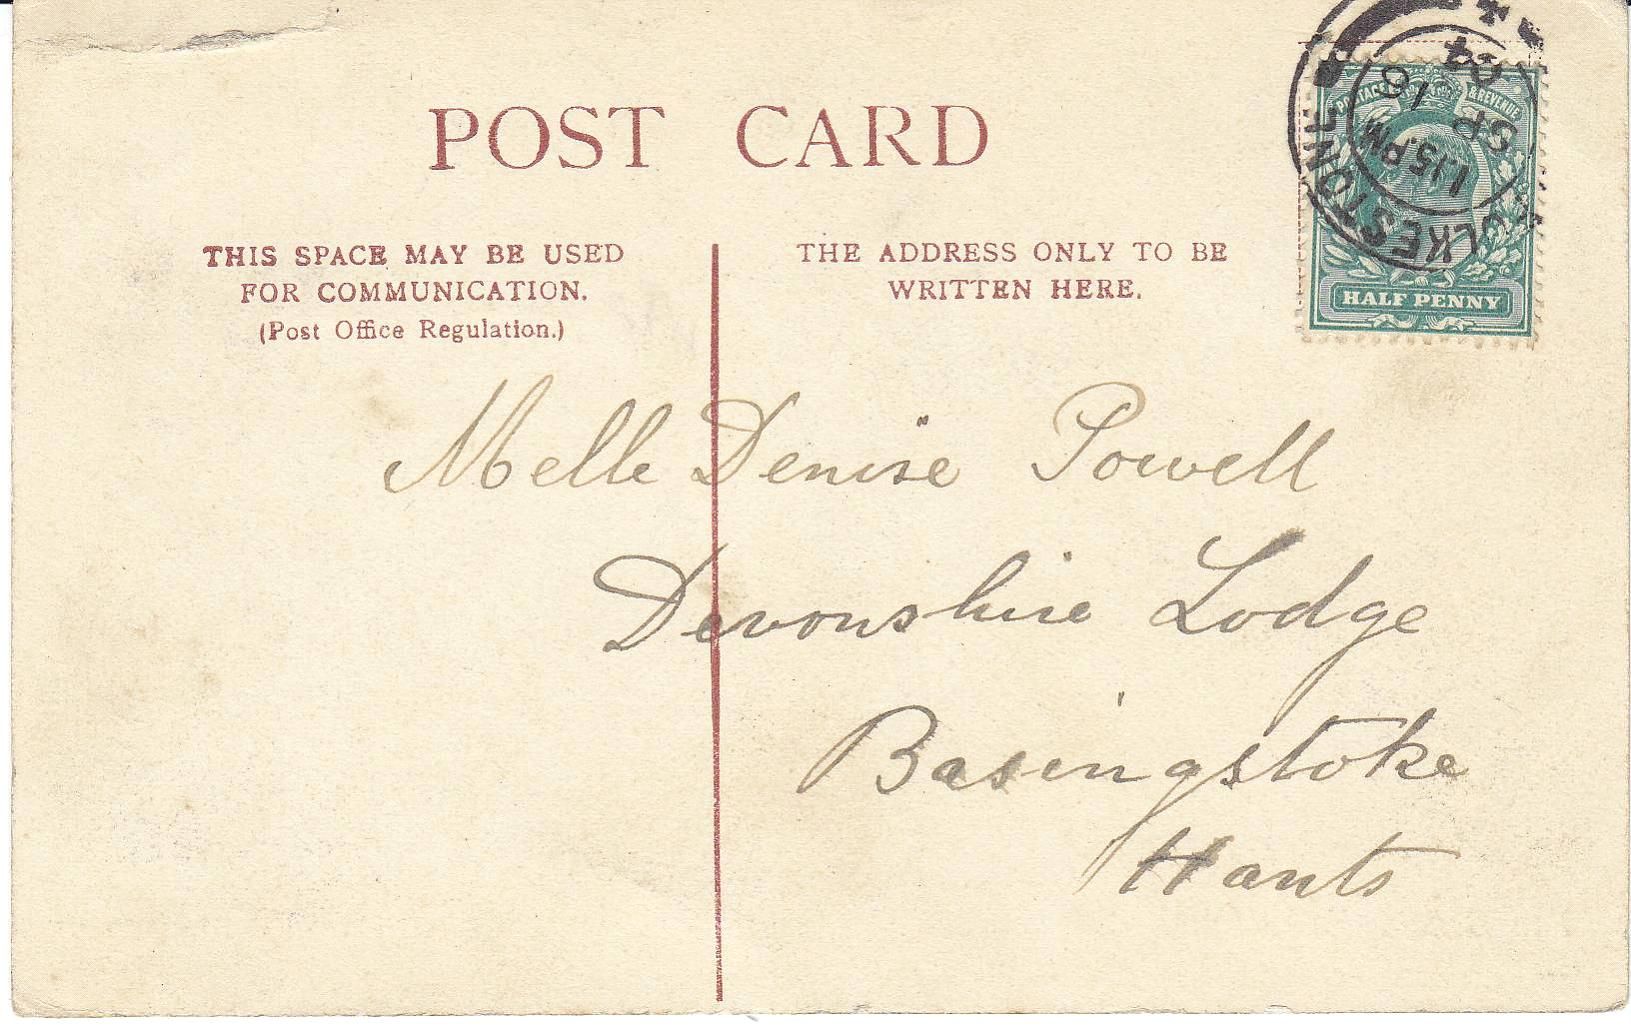 POST CARD
THIS SPACE MAY BE USED
FOR COMMUNICATION.
(Post Office Regulation.)
THE ADDRESS ONLY TO BE
WRITTEN HERE.
POSTAGE & REVENUE
HALF PENNY
FOLKESTONE
1.15 PM
SP 16
04
Melle Denise Powell
Devonshire Lodge
Basingstoke
Hants